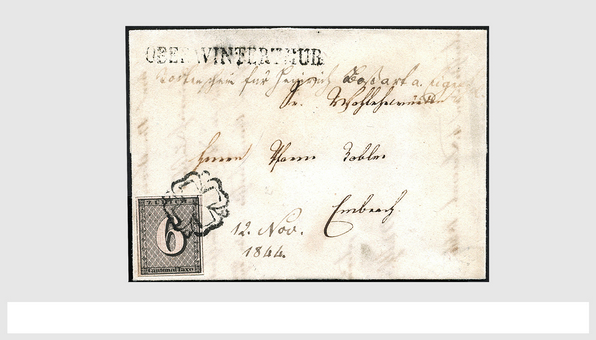 OBERWINTERTHUR
für
Sr. Wohlehrwürden
Herrn Pfarrer Tobler
Embrach.
12. Nov.
1844.
ZÜRICH
6
Cantonal-Taxe